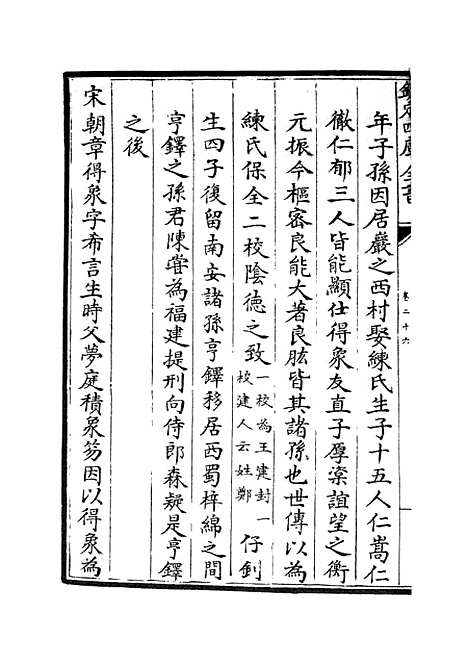 欽定四庫全書
卷二十六
年子孫因居嚴之西村娶練氏生子十五人仁嵩仁
徹仁郁三人皆能顯仕得象友直子厚楶誼望之衡
元振今樞密良能大著良肱皆其諸孫也世傳以為
練氏保全二校陰德之致一校為王建封一校建人云姓鄭仔釗
生四子復留南安諸孫亨鐸移居西蜀梓綿之間
亨鐸之孫君陳嘗為福建提刑向侍郎森疑是亨鐸
之後
宋朝章得象字希言生時父夢庭積象笏因以得象為